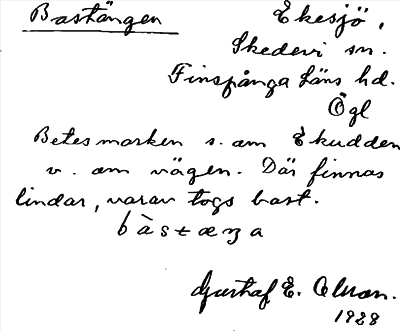 Bastängen
Ekesjö,
Skedevi sn.
Finspånga Läns hd.
Ögl
Betesmarken s. om Ekudden
v. om vägen. Där finnas
lindar, varav togs bast.
bàstæŋa
Gustaf E. Olsson.
1928